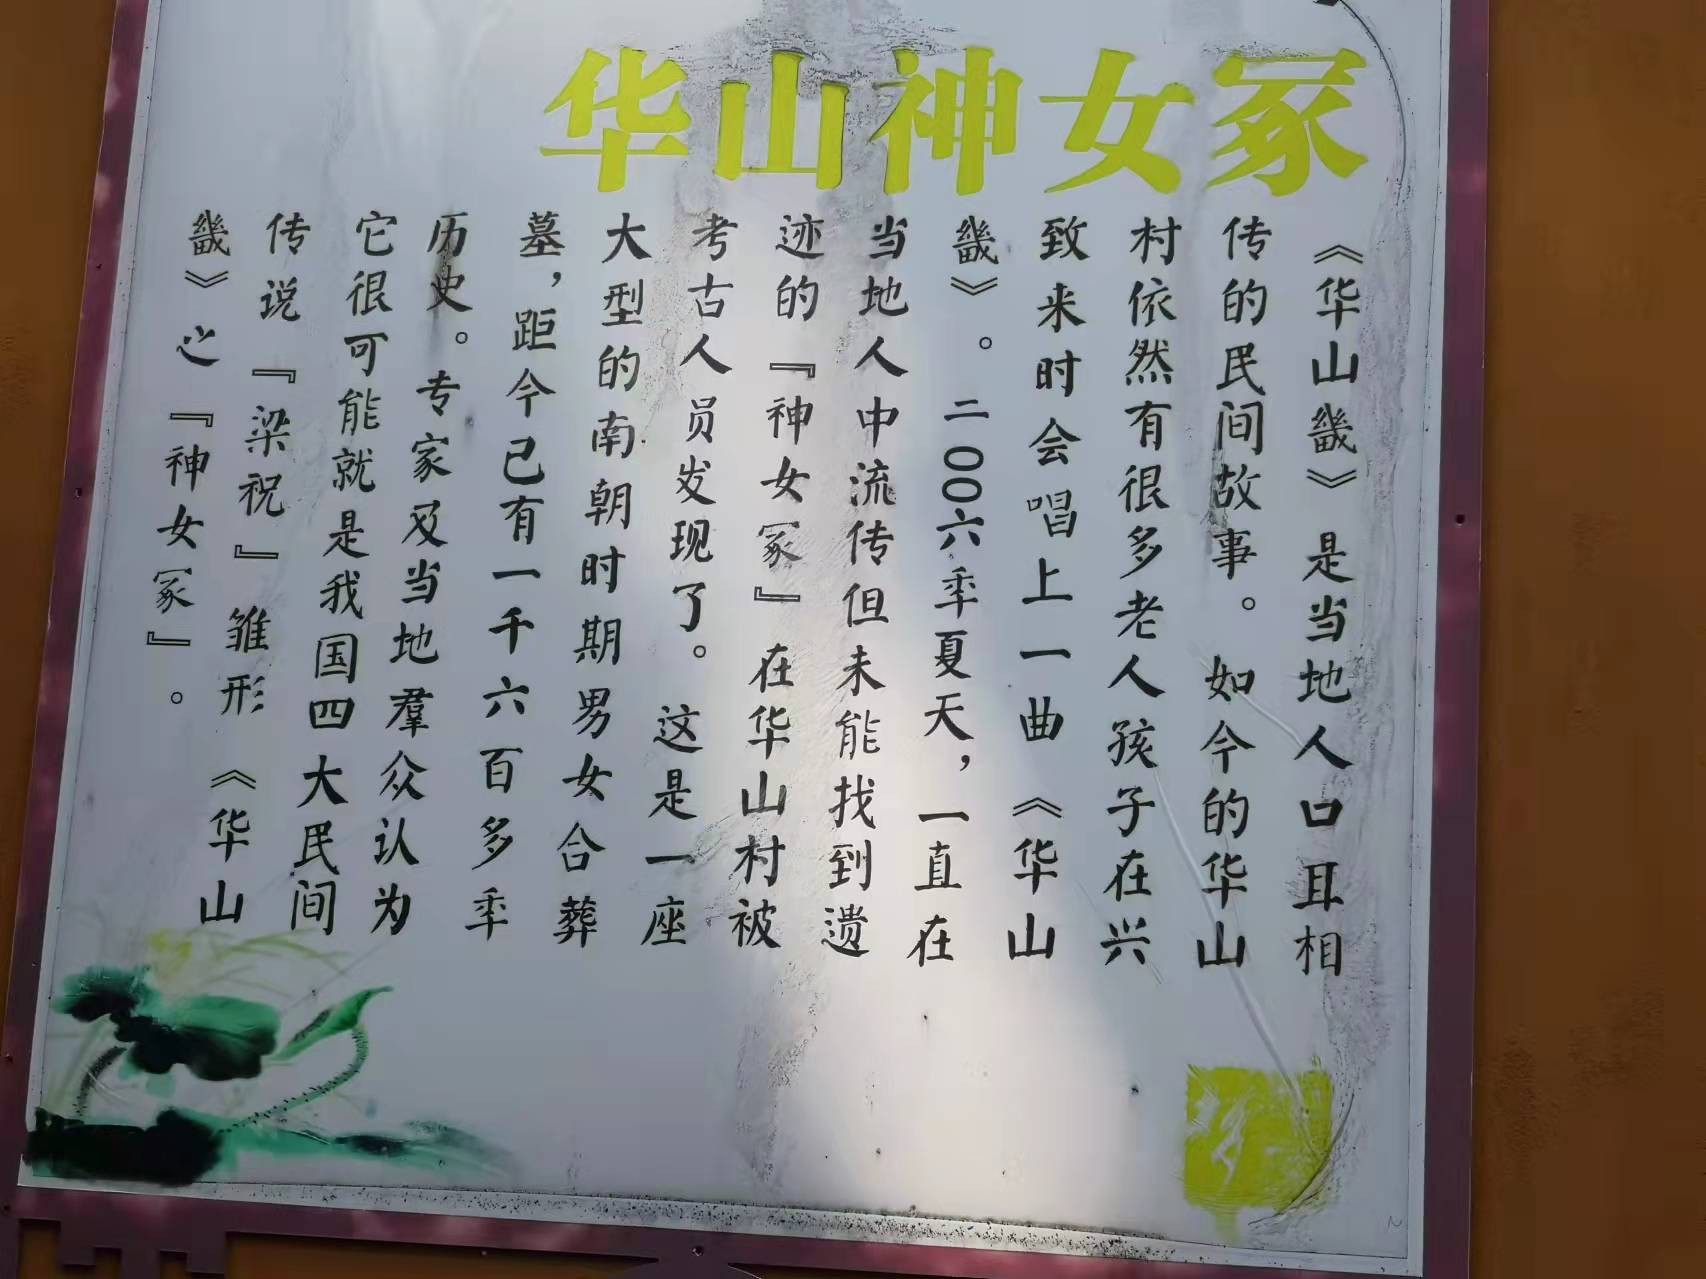 华山神女冢
《华山畿》是当地人口耳相
传的民间故事。如今的华山
村依然有很多老人孩子在兴
致来时会唱上一曲《华山
畿》。二〇〇六年夏天，一直在
当地人中流传但未能找到遗
迹的『神女冢』在华山村被
考古人员发现了。这是一座
大型的南朝时期男女合葬
墓，距今已有一千六百多年
历史。专家及当地羣众认为
它很可能就是我国四大民间
传说『梁祝』雏形《华山
畿》之『神女冢』。